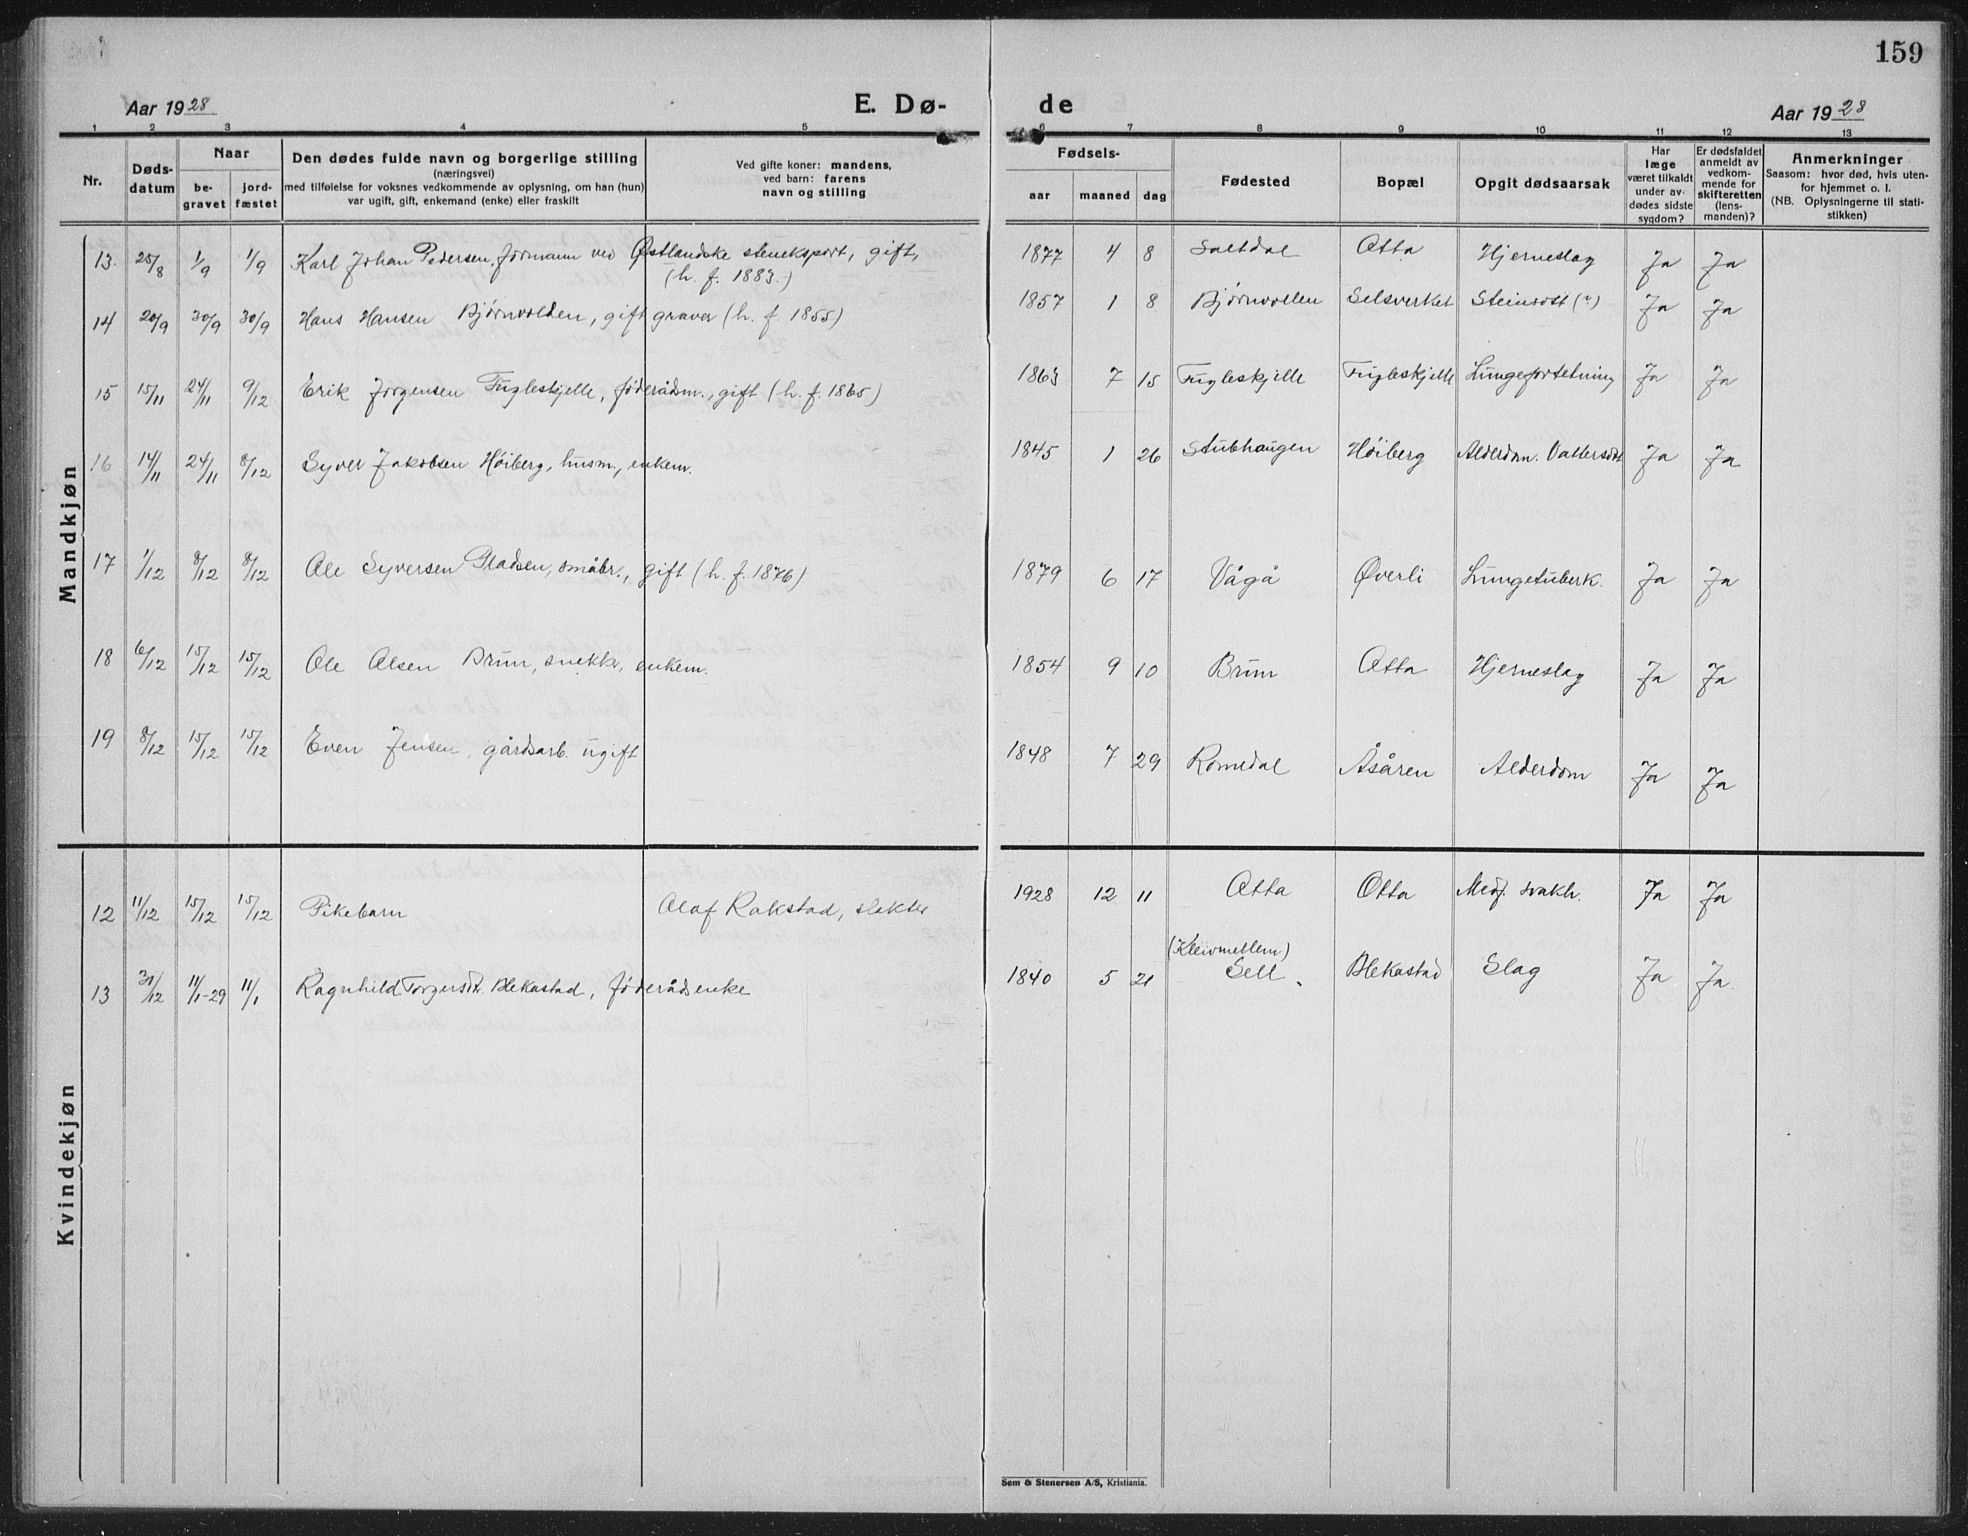 159
Aar 1928 E. Dø- de Aar 1928
1 2 3 4 5 6 7 8 9 10 11 12 13
Nr.
Døds-
datum
Naar
be-
gravet
jord-
fæstet
Den dødes fulde navn og borgerlige stilling
(næringsvei)
med tilføielse for voksnes vedkommende av oplysning, om han (hun)
var ugift, gift, enkemand (enke) eller fraskilt
Ved gifte koner: mandens,
ved barn: farens
navn og stilling
Fødsels-
aar maaned dag
Fødested
Bopæl
Opgit dødsaarsak
Har
læge
været tilkaldt
under av-
dødes sidste
sygdom?
Er dødsfaldet
anmeldt av
vedkom-
mende for
skifteretten
(lens-
manden)?
Anmerkninger
Saasom: hvor død, hvis uten-
for hjemmet o. l.
(NB. Oplysningerne til stati-
stikken)
Mandkjøn
13 25/8 1/9 1/9 Karl Johan Pedersen, formann ved Østlandske steneksport, gift, 1877 4 8 Saltdal Otta Hjerneslag Ja Ja
(h. f. 1883.)
14 20/9 30/9 30/9 Hans Hansen Bjørnvolden, gift graver (h. f. 1855) 1857 1 8 Bjørnvollen Selsverket Steinsott (?) Ja Ja
15 15/11 24/11 9/12 Erik Jørgensen Fugleskjelle, føderådm., gift (h. f. 1865) 1863 7 15 Fugleskjelle Fugleskjelle Lungefortetning Ja Ja
16 14/11 24/11 8/12 Syver Jakobsen Høiberg, husm., enkem. 1845 1 26 Stubhaugen Høiberg Alderdom. Vattersott Ja Ja
17 1/12 8/12 8/12 Ole Syversen Pladsen, småbr., gift (h. f. 1876) 1879 6 17 Vågå Øverli Lungetuberk. Ja Ja
18 6/12 15/12 15/12 Ole Olsen Brun, snekker, enkem. 1854 9 10 Brun Otta Hjerneslag Ja Ja
19 8/12 15/12 15/12 Even Jensen, gårdsarb. ugift 1848 7 29 Romedal Åsåren Alderdom Ja Ja
Kvindekjøn
12 11/12 15/12 15/12 Pikebarn Olaf Rakstad, slakter 1928 12 11 Otta Otta Medf. svakh. Ja Ja
(Kleivmellem)
13 31/12 11/1-29 11/1 Ragnhild Torgersdt. Blekastad, føderådsenke 1840 5 21 Sell. Blekastad Slag Ja Ja.
Sem & Stenersen A/S, Kristiania.